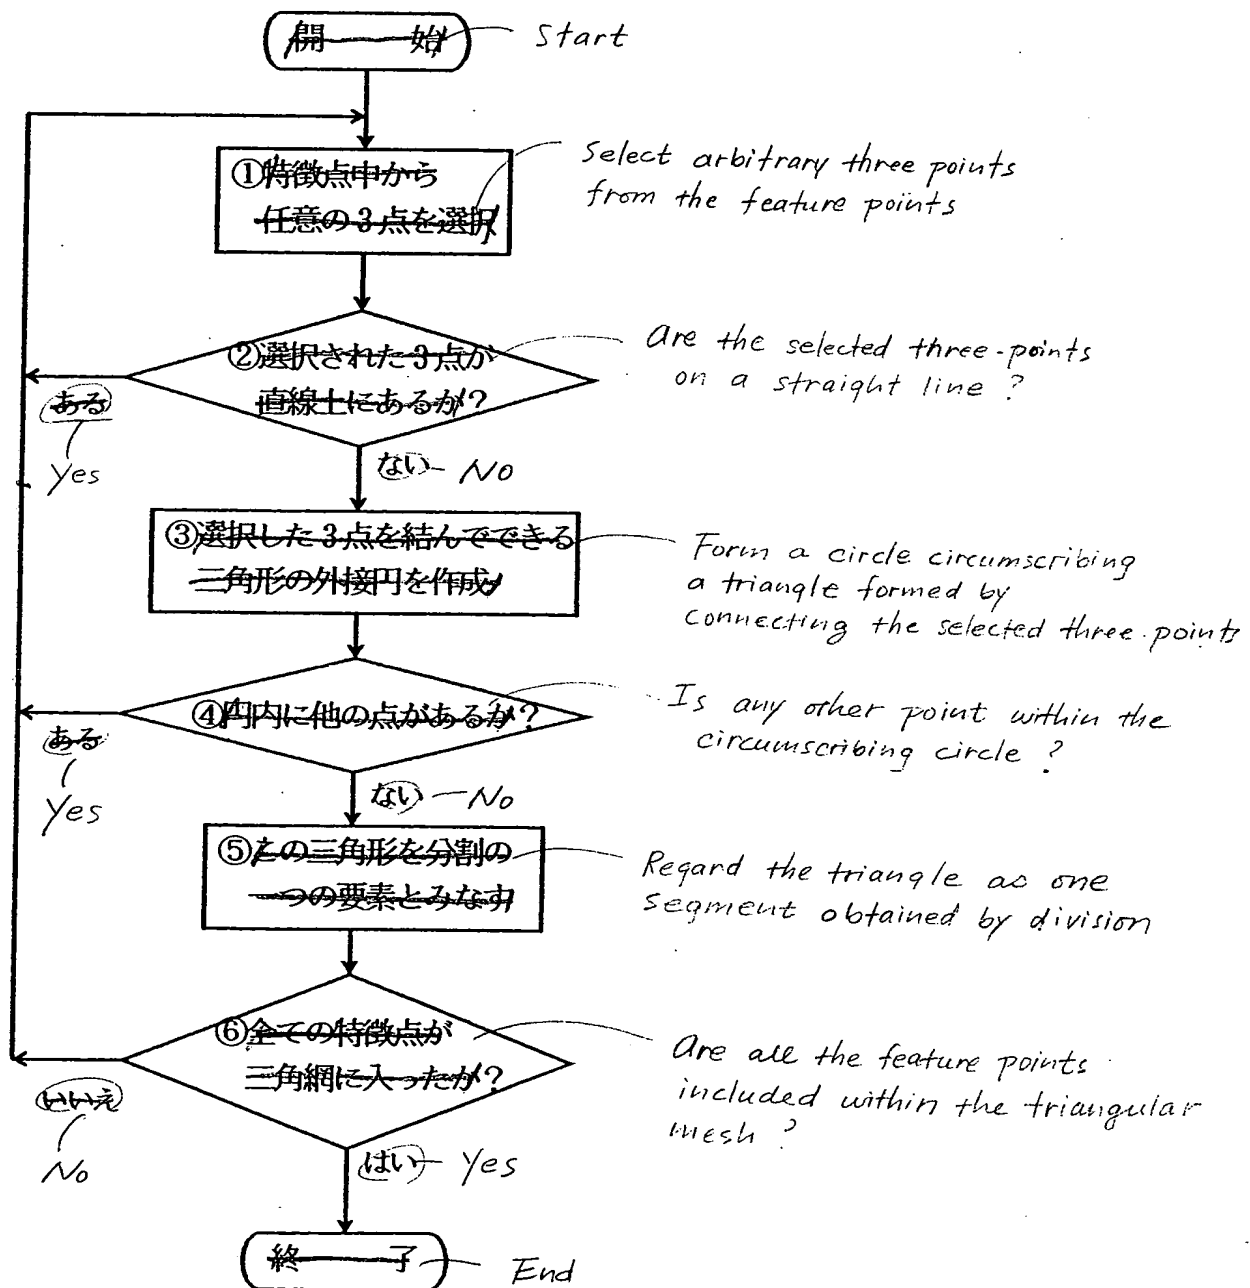 開 始
Start
①特徴点中から
任意の3点を選択
Select arbitrary three points
from the feature points
②選択された3点が
直線土にあるか?
Are the selected three-points
on a straight line ?
ある
Yes
ない
No
③選択した3点を結んでできる
三角形の外接円を作成
Form a circle circumscribing
a triangle formed by
connecting the selected three points
④円内に他の点があるか?
Is any other point within the
circumscribing circle ?
ある
Yes
ない
No
⑤たの三角形を分割の
一つの要素とみなす
Regard the triangle as one
segment obtained by division
⑥全ての特徴点が
三角網に入ったか?
Are all the feature points
included within the triangular
mesh ?
いいえ
No
はい
Yes
終 了
End